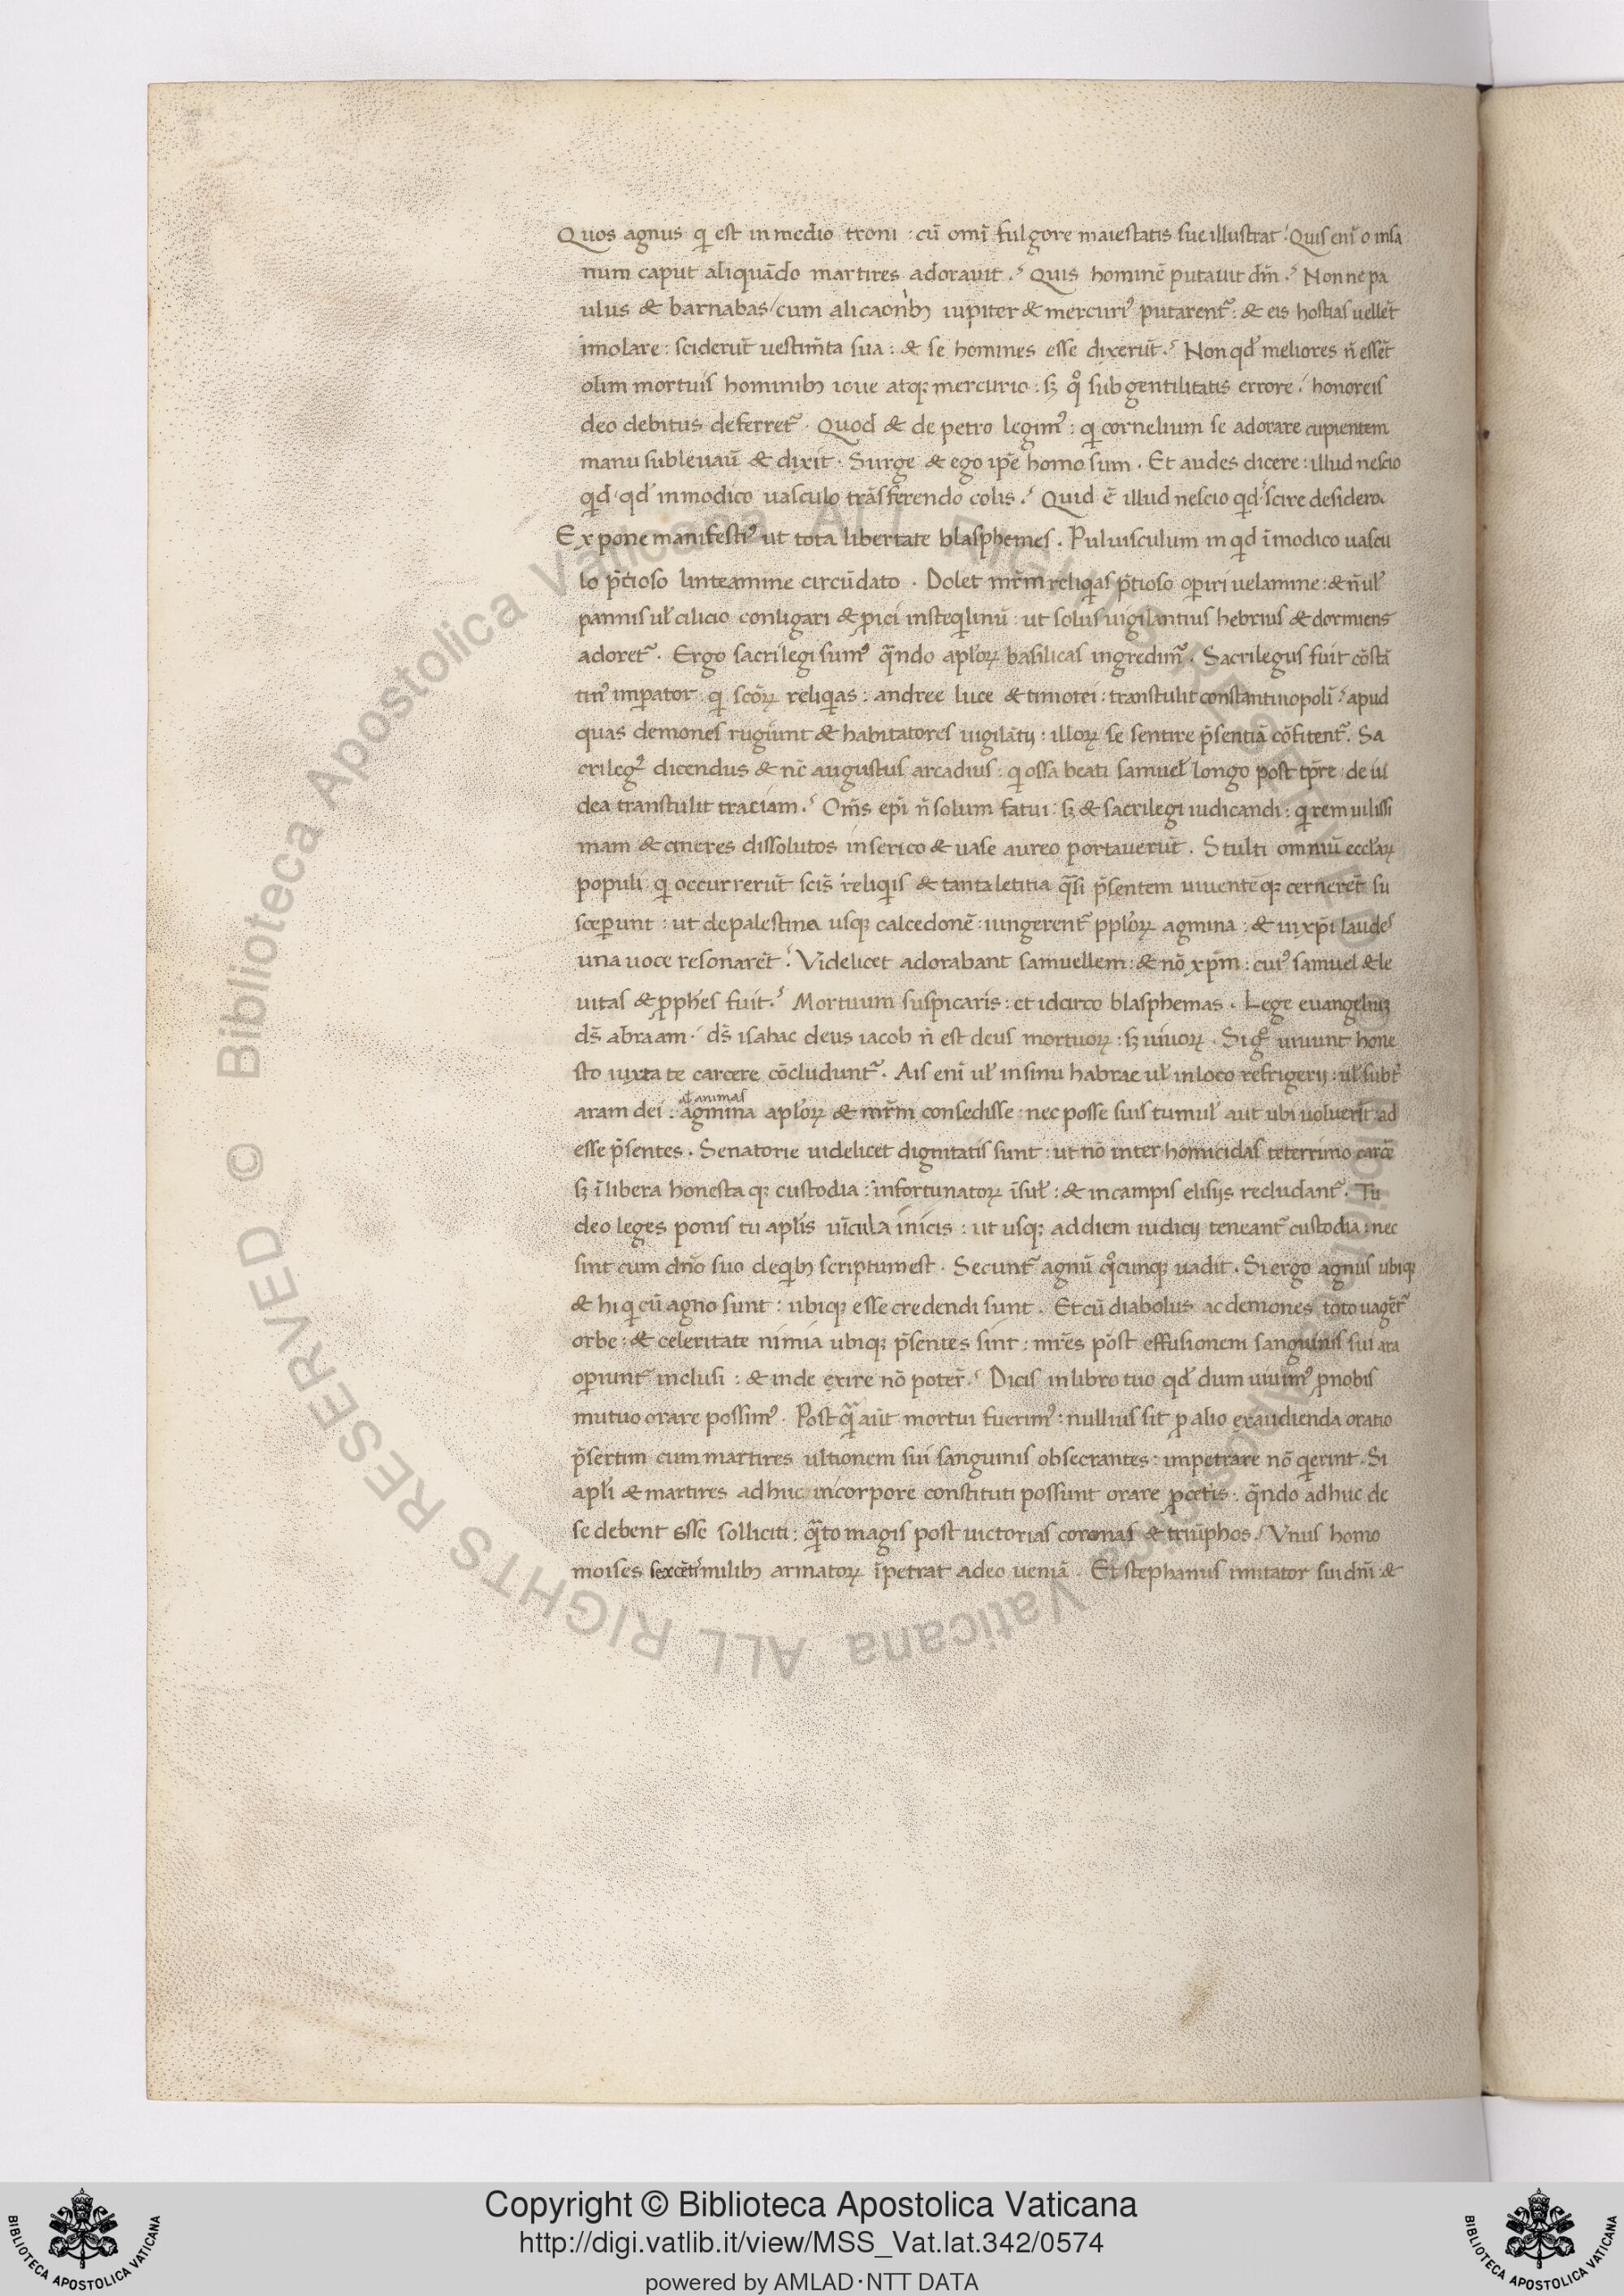 Quos agnus qi est in medio troni : cū omī fulgore maiestatis sue illustrat ? Quis enī o insa
num caput aliquādo martires adorauit ? Quis hominē putauit dm̄ ? Nonne pa
ulus & barnabas / cum alicaonibꝫ iupiter & mercuriꝰ putarent᷑ : & eis hostias uellēt
imolare : sciderūt uestim̄ta sua : & se homines esse dixerūt ? Non qd' meliores n̄ essēt
olim mortuis hominibꝫ ioue atqꝫ mercurio : sꝫ qͦ sub gentilitatis errore / honor eis
deo debitus deferret᷑ . Quod & de petro legimꝰ : qi cornelium se adorare cupientem
manu subleuauū & dixit . Surge & ego ip̄e homo sum . Et audes dicere : illud nescio
qid' qd' in modico uasculo trāsferendo colis ? Quid ē illud nescio qid' scire desidero
Expone manifestiꝰ ut tota libertate blasphemes . Puluisculum in qid ī modico uascu
lo p̄tioso linteamine circūdato . Dolet mr̄m reliqias p̄tioso operiri uelamine : & n̄ ul'
pannis ul' cilicio conligari & proici in steqilinū : ut solus uigilantius hebrius & dormiens
adoret᷑ . Ergo sacrilegi sumꝰ qᷓndo apl'oꝝ basilicas ingredim᷑ . Sacrilegus fuit cōstā
tinꝰ imperator qi sc̄oꝝ reliqias : andree luce & timotei : transtulit constantinopolī ? apud
quas demones rugiunt & habitatores uigilātij : illoꝝ se sentire p̄sentiā cōfitent᷑ . Sa
crilegꝰ dicendus & nc̄ augustus arcadius : qi ossa beati samuel' longo post tp̄re : de iu
dea transtulit traciam ? Om̄s ep̄i n̄ solum fatui : sꝫ & sacrilegi iudicandi : qi rem uilissi
mam & cineres dissolutos in serico & uase aureo portauerūt . Stulti omniū eccl'aꝝ
populi qi occurrerūt scis̄ reliqiis & tanta letitia qᷓsi p̄sentem uiuentēqꝫ cernerēt su
sceperunt : ut de palestina usqꝫ calcedonē : iungerent᷑ ppl'oꝝ agmina : & in xp̄i laudes
una uoce resonarēt ? Videlicet adorabant samuellem : & nō xp̄m : cuiꝰ samuel & le
uitas & pphes fuit ? Mortuum suspicaris : et idcirco blasphemas . Lege euangeliuꝫ
ds̄ abraam . ds̄ isahac deus iacob n̄ est deus mortuoꝝ : sꝫ uiuoꝝ . Si gͦ uiuunt hone
sto iuxta te carcere cōcludunt᷑ . Ais enī ul' in sinu habrae ul' in loco refrigerij : ul' subt'
aram dei . agmina apl'oꝝ & mr̄m consedisse : nec posse suis tumul' aut ubi uoluerīt ad
al' animas
esse p̄sentes . Senatorie uidelicet dignitatis sunt : ut nō inter homicidas teterrimo carcē
sꝫ ī libera honestaqꝫ custodia : infortunatoꝝ īsul' : & in campis elisijs recludant᷑ . Tu
deo leges ponis tu apl'is uīcula inicis : ut usqꝫ ad diem iudicij teneant᷑ custodia : nec
sint cum dn̄o suo de qibꝫ scriptum est . Secunt᷑ agnū qͦcunqꝫ uadit . Si ergo agnus ubiqꝫ
& hi qi cū agno sunt : ubiqꝫ esse credendi sunt . Et cū diabolus ac demones toto uagēt᷑
orbe : & celeritate nimia ubiqꝫ p̄sentes sint : mr̄es post effusionem sanguinis sui ara
operiunt᷑ inclusi : & inde exire nō poter̄ ? Dicis in libro tuo qd' dum uiuimꝰ pro nobis
mutuo orare possimꝰ . Post qᷓ aūt mortui fuerimꝰ : nullius sit pro alio exaudienda oratio
p̄sertim cum martires ultionem sui sanguinis obsecrantes : impetrare nō qierint . Si
apl'i & martires adhuc in corpore constituti possunt orare pro cet̄is . qᷓndo adhuc de
se debent esse solliciti : qᷓto magis post uictorias coronas & triūphos ? Vnus homo
moises sexcētis milibꝫ armatoꝝ īpetrat a deo ueniā . Et stephanus imitator sui dn̄i &
Copyright © Biblioteca Apostolica Vaticana
http://digi.vatlib.it/view/MSS_Vat.lat.342/0574
powered by AMLAD·NTT DATA
BIBLIOTECA APOSTOLICA VATICANA
BIBLIOTECA APOSTOLICA VATICANA
© Biblioteca Apostolica Vaticana ALL RIGHTS RESERVED